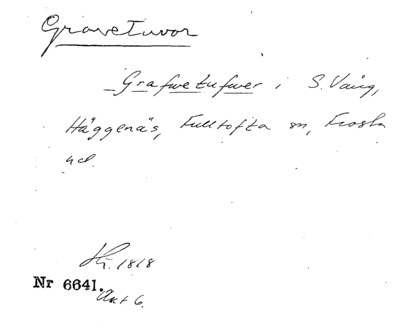 Gravetuvor
Grafwetufwer i S. Vång,
Häggenäs, Fulltofta sn, Frosta
hd.
1818
Nr 6641.
Akt 6.